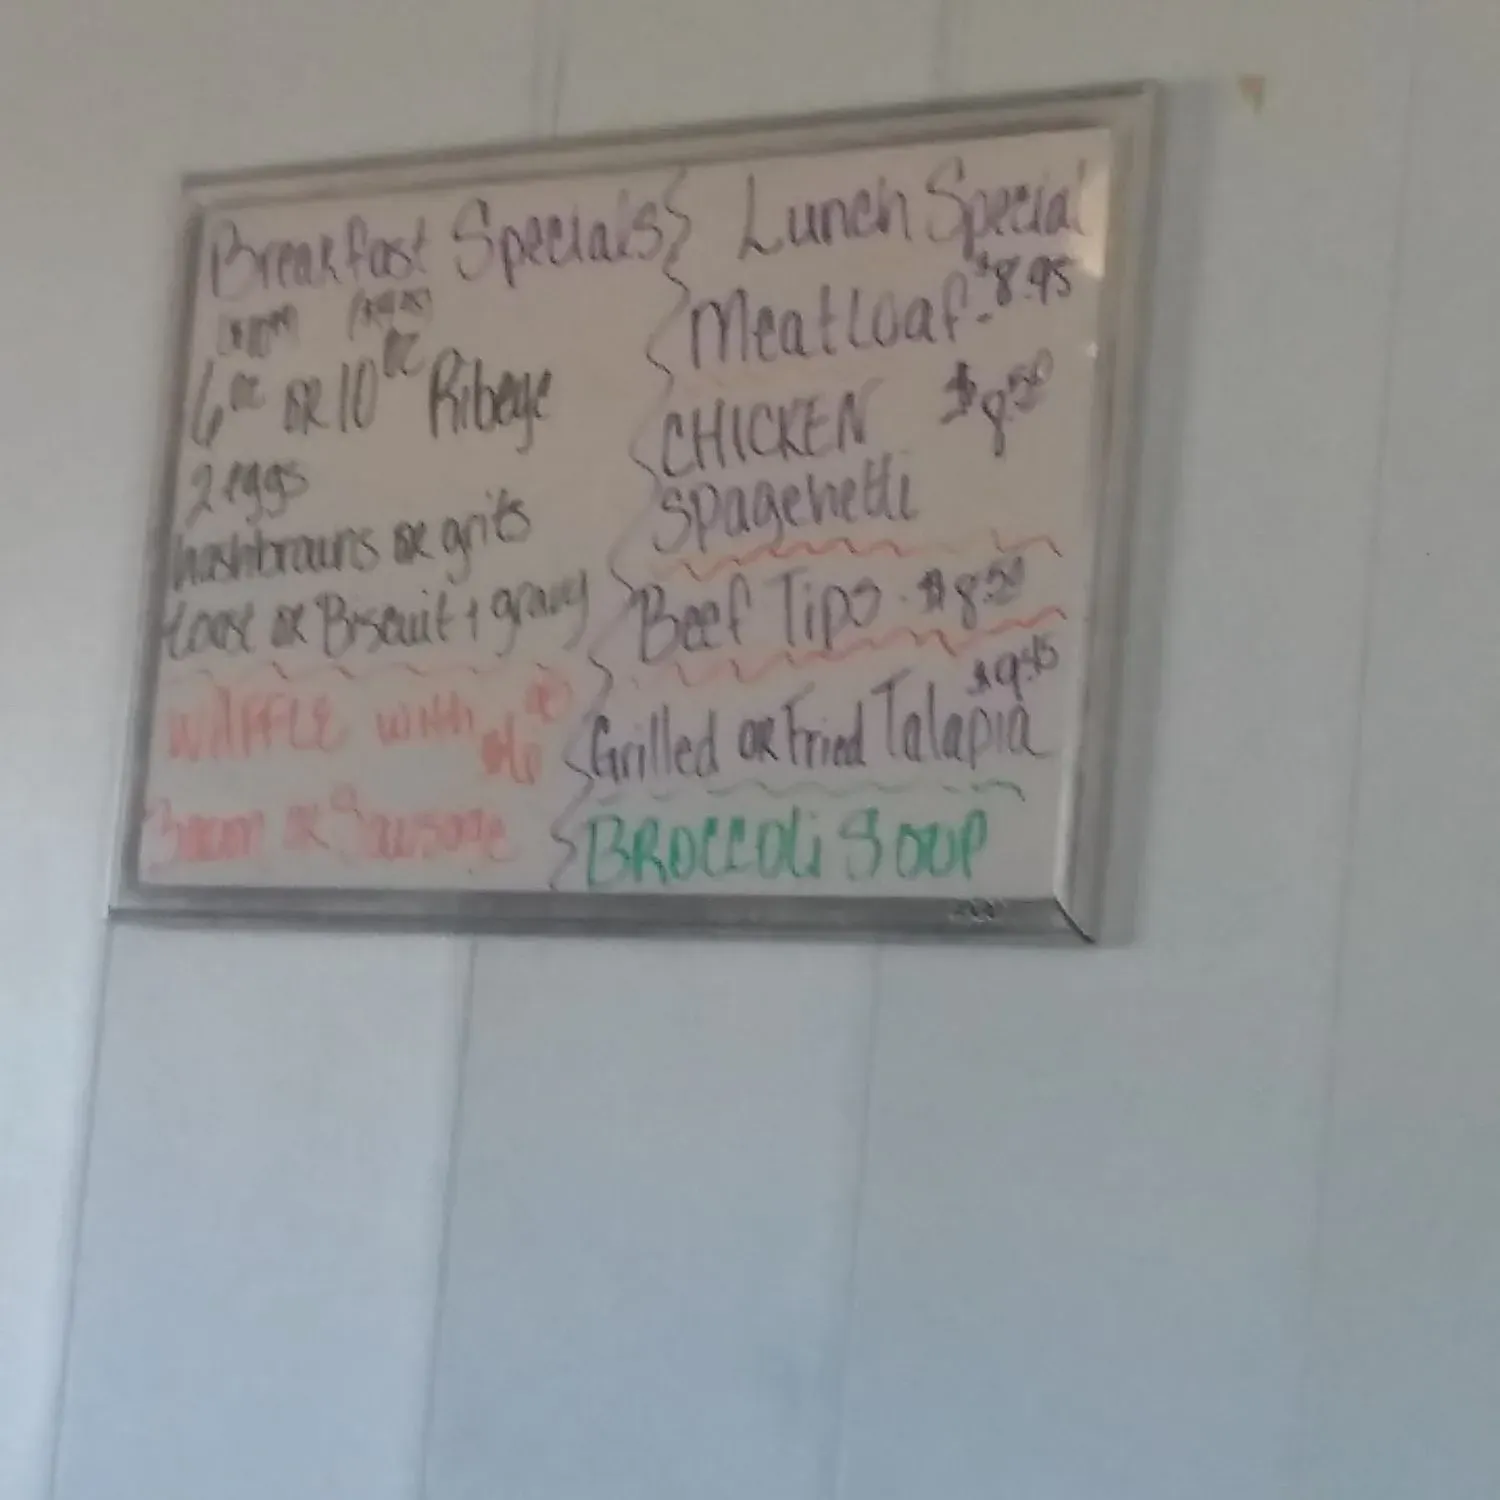 Breakfast Specials
6oz OR 10oz Ribeye
2 eggs
hashbrowns OR grits
toast OR Biscuit + gravy
WAFFLE with
Bacon OR Sausage
Lunch Special
Meatloaf - $8.95
CHICKEN $8.50
Spagehetti
Beef Tips - $8.50
$9.45
Grilled OR Fried Talapia
BROCCOLi SOUP